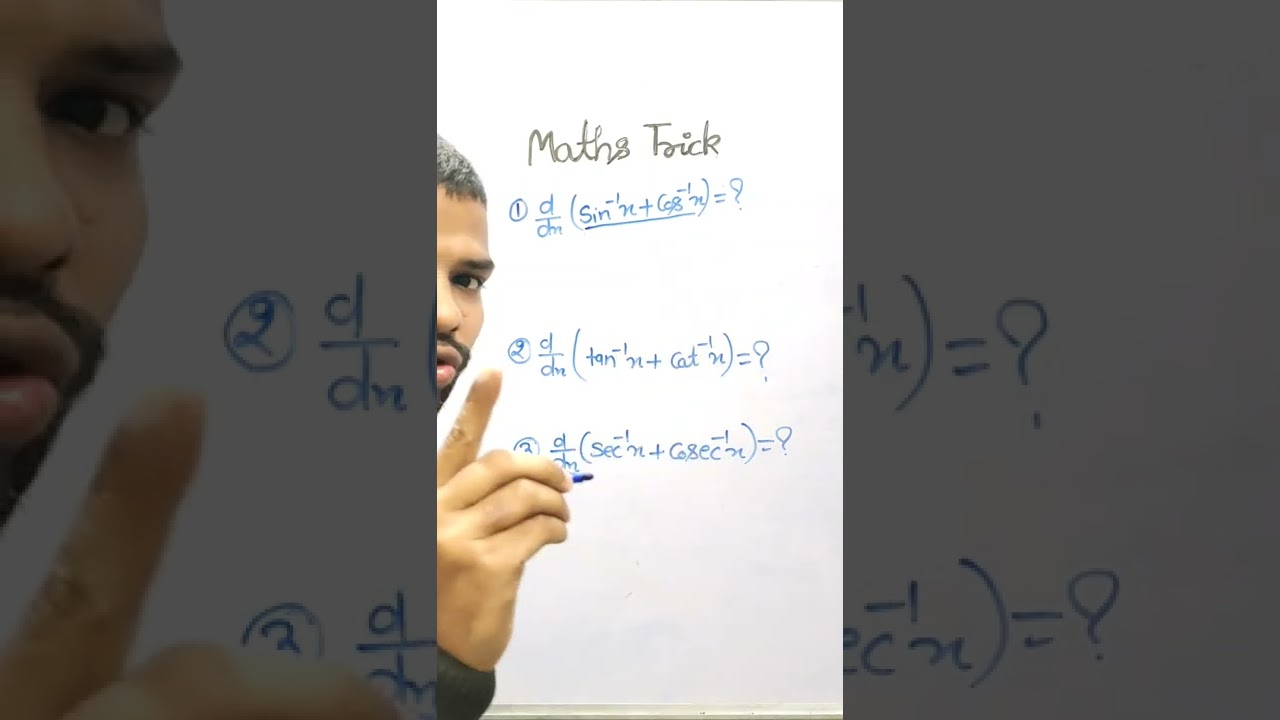 Maths Trick
① d/dx (sin⁻¹x + Cos⁻¹x) = ?
② d/dx (tan⁻¹x + cot⁻¹x) = ?
③ d/dx (sec⁻¹x + Cosec⁻¹x) = ?